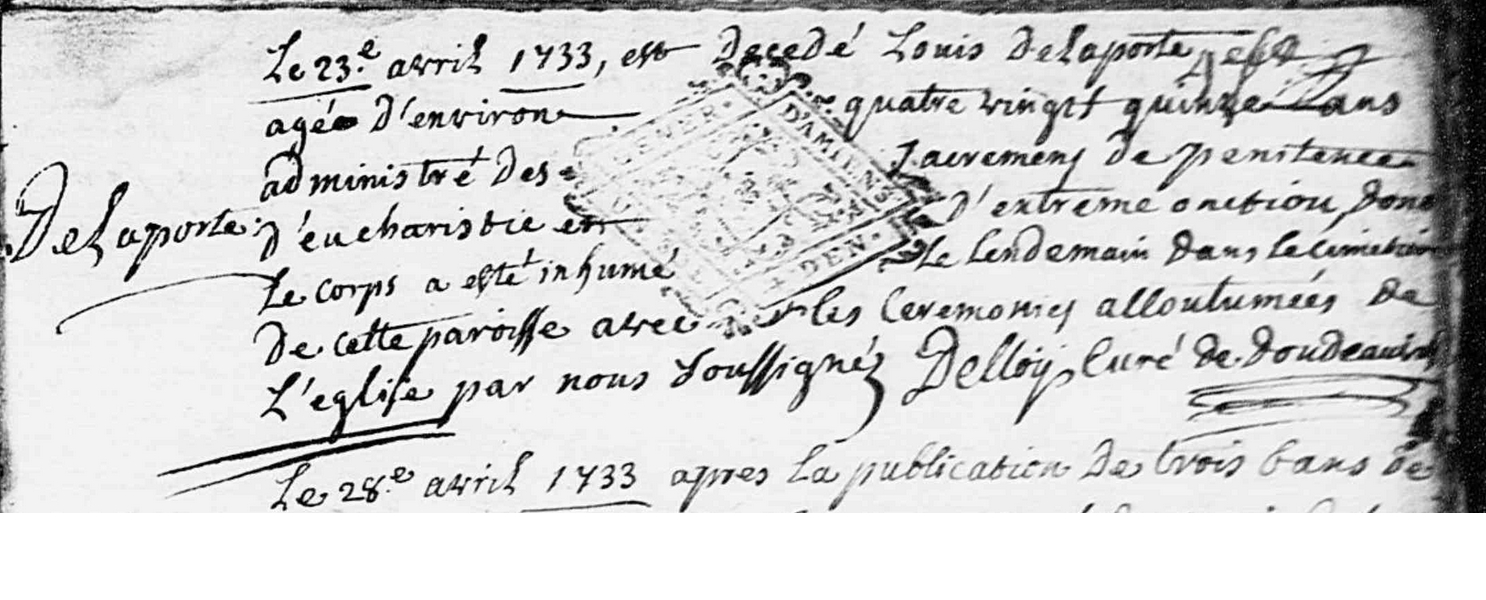 Le 23.e avril 1733, est decedé Louis Delaporte
agée d'environ quatre vingt quinze ans
administré des sacremens de penitence
Delaporte. d'eucharistie et d'extreme onction, donc
Le corps a esté inhumé le lendemain dans le cimetiere
de cette paroisse avec les ceremonies accoutumées de
L'eglise par nous soussignéz Delloy, curé de doudeauville
D'AMIENS
DEN.
Le 28.e avril 1733 apres la publication de trois bans de